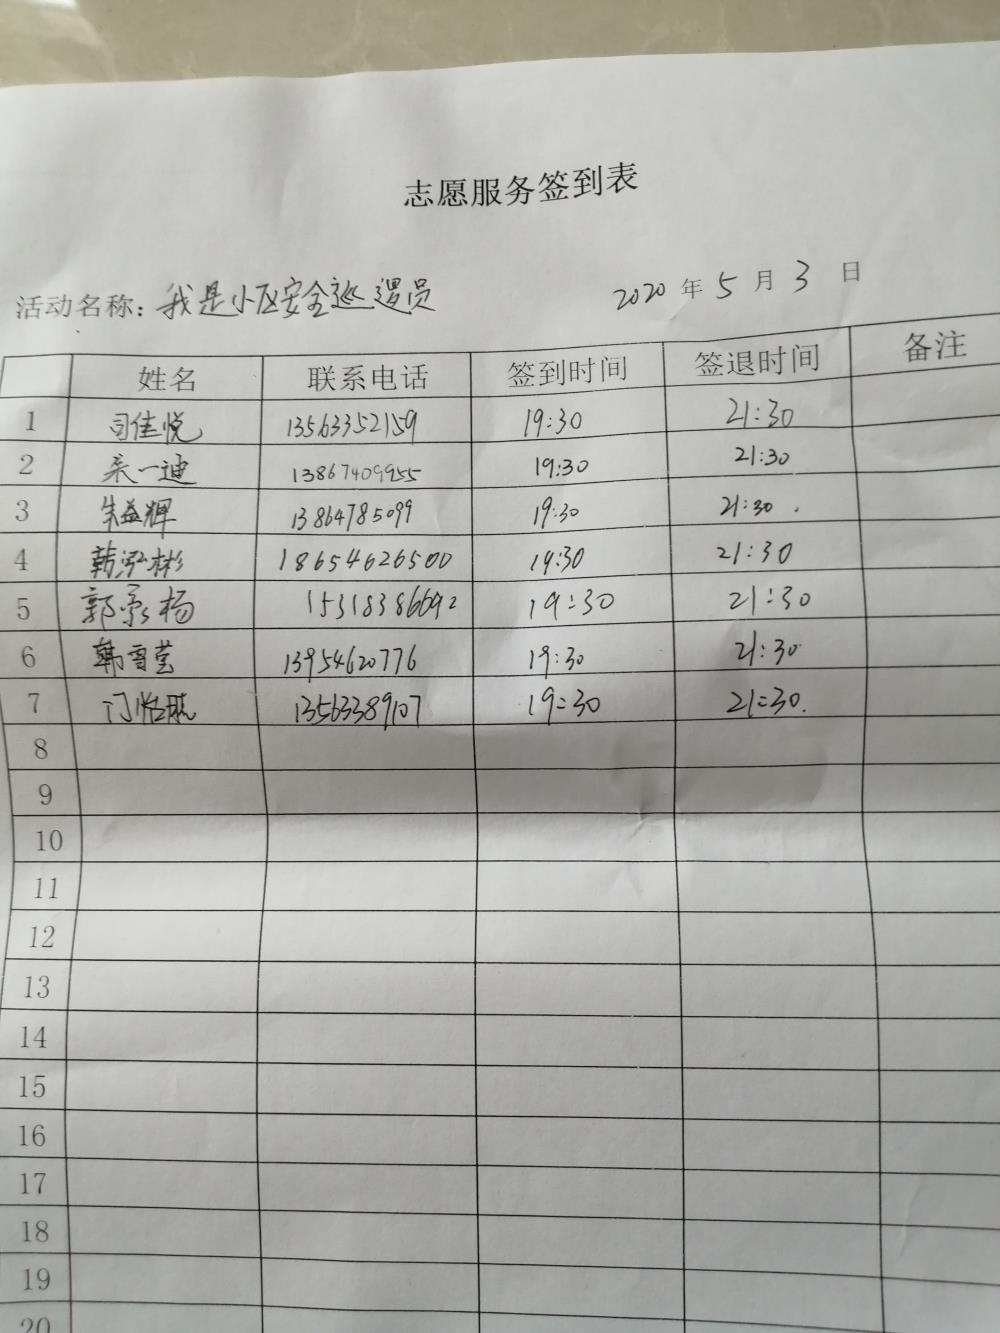 志愿服务签到表
活动名称：我是小区安全巡逻员 2020年5月3日
姓名 联系电话 签到时间 签退时间 备注
1 司佳悦 13563352159 19:30 21:30
2 一迪 13867409955 19:30 21:30
3 朱益辉 13864785099 19:30 21:30
4 韩泓彬 18654626500 19:30 21:30
5 郭承杨 15318386692 19:30 21:30
6 韩雪莹 13954620776 19:30 21:30
7 门 13563389107 19:30 21:30
8
9
10
11
12
13
14
15
16
17
18
19
20